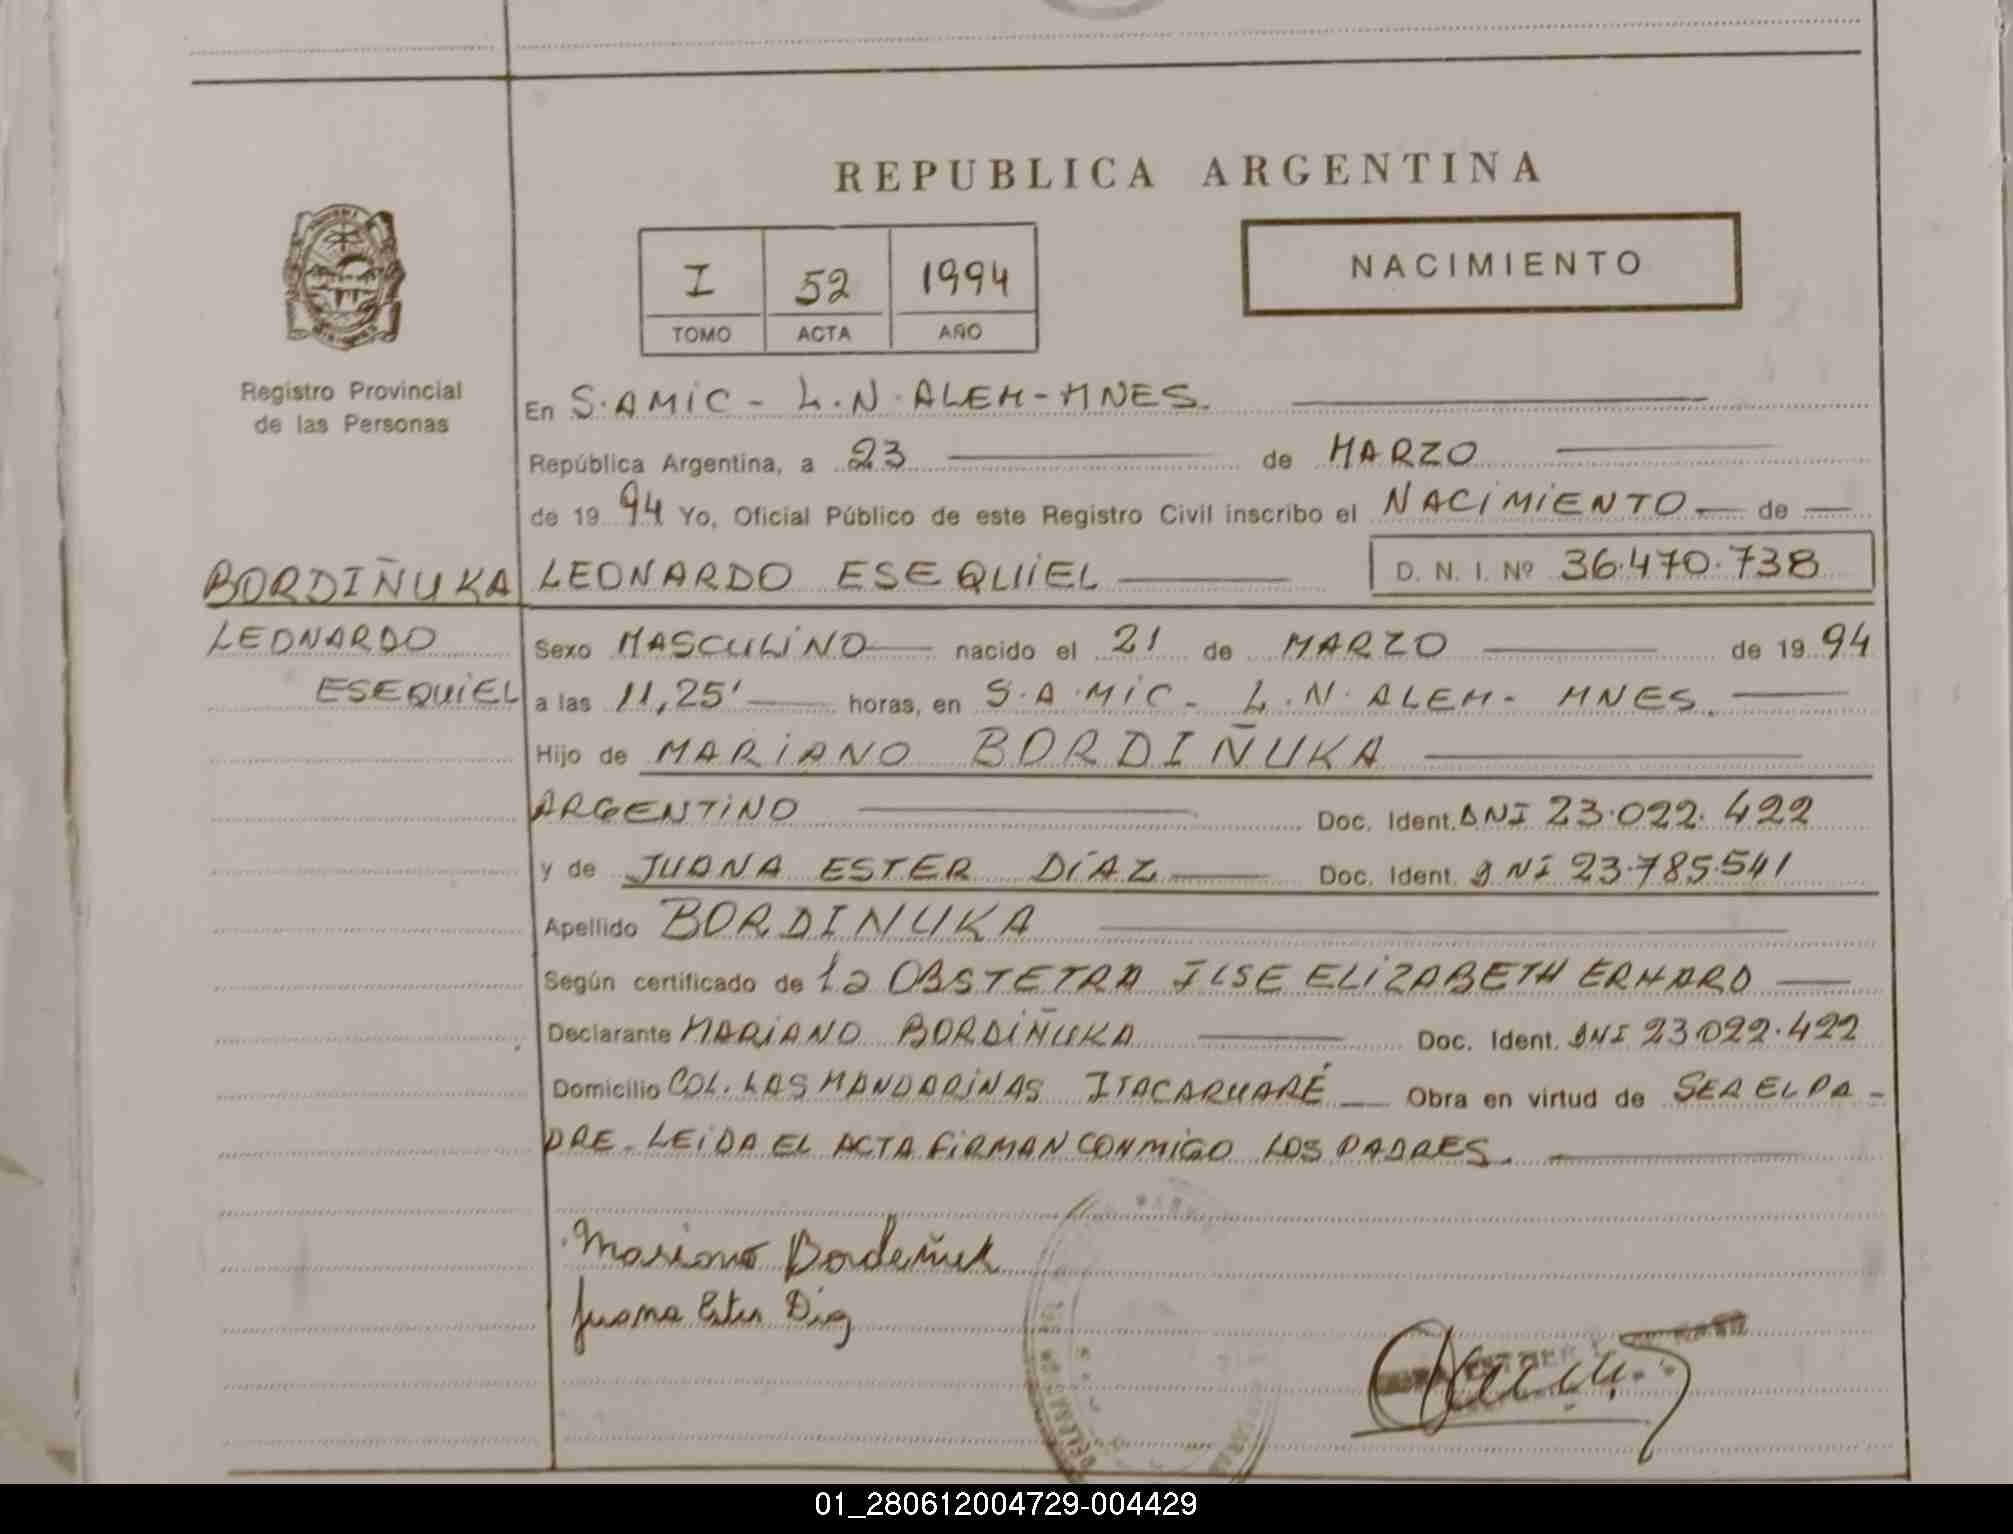 REPUBLICA ARGENTINA
I 52 1994
TOMO ACTA AÑO
NACIMIENTO
Registro Provincial
de las Personas
En S.AMIC - L.N.ALEM-MNES.
República Argentina, a 23 de MARZO
de 1994 Yo, Oficial Público de este Registro Civil inscribo el NACIMIENTO de
BORDIÑUKA LEONARDO ESEQUIEL D. N. I. Nº 36.470.738
LEONARDO
ESEQUIEL
Sexo MASCULINO nacido el 21 de MARZO de 1994
a las 11,25' horas, en S.A.MIC - L.N. ALEM - MNES.
Hijo de MARIANO BORDIÑUKA
ARGENTINO Doc. Ident. DNI 23.022.422
y de JUANA ESTER DÍAZ Doc. Ident. DNI 23.785.541
Apellido BORDINUKA
Según certificado de la OBSTETRA ILSE ELIZABETH ERHARD
Declarante MARIANO BORDIÑUKA Doc. Ident. DNI 23.022.422
Domicilio COL. LAS MANDARINAS ITACARUARÉ Obra en virtud de SER EL PA-
DRE. LEIDA EL ACTA FIRMAN CONMIGO LOS PADRES.
Mariano Bordeñuk
Juana Ester Diaz
01_280612004729-004429